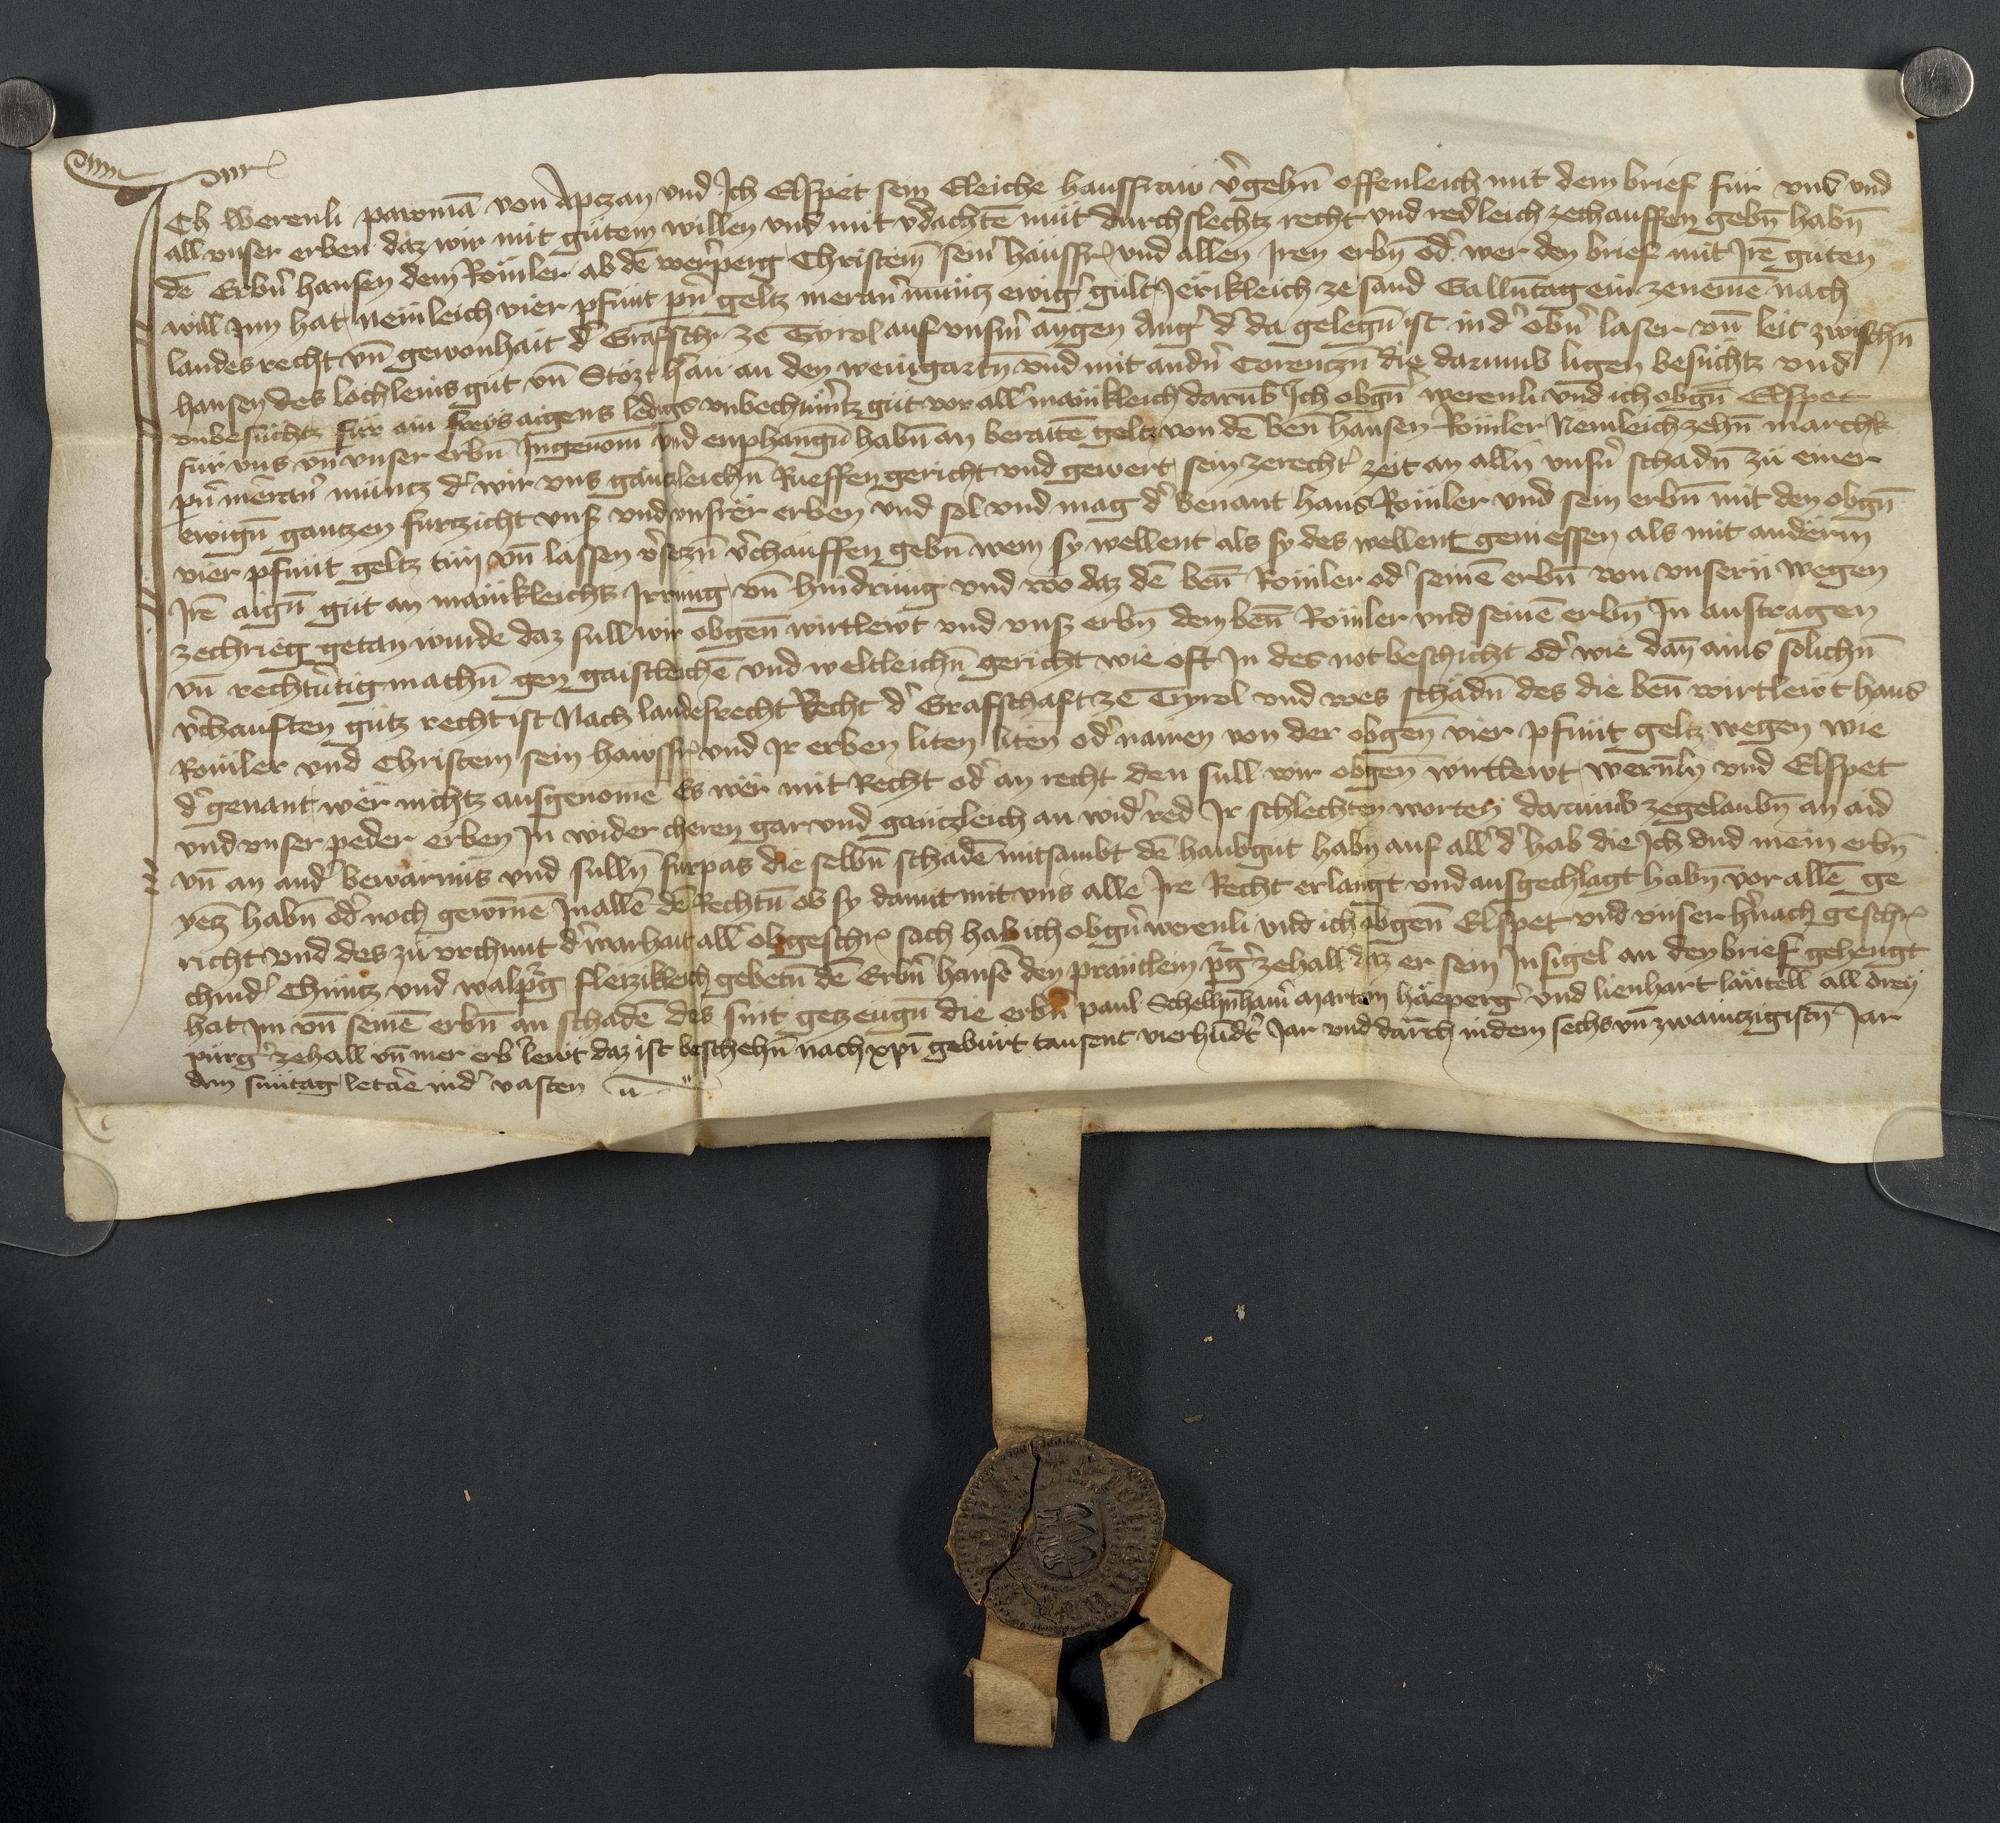 Ich Werenli pawman von Apczan und Ich Elspet sein Eleiche hausfraw v̉gehn̄ offenleich mit dem brief für uns und
all unser erben daz wir mit gutem willen und mit v̉dachtē mut durchslechtz recht und redleich ze chauffen gebn̄ habn̄
dē Erbn̉ hansen dem Römler ab dē werperg Christein sein̉ hausfr und allen Iren erbn̄ od̉ wer den brief mit Irē guten
will Inn hat nemleich vier pfunt pn̉ geltz meran̉ müntz ewig̉ gült Jerikleich ze sand Gallntag ein zenemē nach
landesrecht un̄ gewonhait d̉ Grafsch ze Tyrol auf unsm̉ aygen Ang̉ d̉ da gelegn̄ ist in d̉ obn̉ laser un̄ leit zwischn̄
hansen des löchleins gut un̄ Stözt her an den weingartn̄ und mit andn̉ Corenczn̄ die darumb ligen besuchtz und
unbesuchtz für ain freys aigens ledigs unbechüm̉tz gut vor all̉ mänikleich darūb Ich obgn̄ werenli und ich obgn̄ Elspet
für uns un̄ unser erbn̄ Ingenom̄ und enphangn̄ habn̄ an beraitē geltz von dē ben̄ hansen Römler Nemleich zehn̄ marchk
pn̉ meran̉ müntz d̉ wir uns gäntzleichn̄ Rueffen gericht und gewert sein ze recht̉ zeit an alln̄ unsn̉ schadn̄ zu einer
ewign̄ gantzen furtzicht unß und unsrer erben und sol und mag d̉ benant hans Römler und sein erbn̄ mit den obgn̄
vier pfunt geltz tün un̄ lassen v̉setzn̄ v̉chauffen gebn̄ wem sy wellent als sy des wellent geniessen als mit anderm
Irē aign̄ gut an mänikleichs Irrung un̄ hindrung und wo daz dē ben̄ Römler od̉ seinē erbn̄ von unsern wegen
ze chrieg getan wurde daz sull wir obgen̄ wirtlewt und unß erbn̄ dem ben̄ Römler und seinē erbn̄ In austragen
un̄ rechtv̉tig machn̄ gen gaistleichē und weltleichn̄ gericht wie oft In des not beschicht od̉ wie dan̄ ains solichn̄
v̉chauften gutz recht ist Nach landesrecht Recht d̉ Grafschaft ze Tyrol und wes schadn̄ des die ben̄ wirtlewt hans
Römler und Christein sein hawsfr und Ir erben liten liten od̉ namen von der obgen̄ vier pfunt geltz wegen wie
d̉ genant wer nichtz ausgenomē Es wer mit Recht od̉ an recht den sull wir obgen̄ wirtlewt wernly und Elspet
und unser peder erben In wider cheren gar und gäntzleich an wid̉ red Ir schlechten worten darumb ze gelaubn̄ an aid
un̄ an and̉ bewärnüs und sulln̄ fürpas die selbn̄ schadē mitsambt dē haubgut habn̄ auf all̉ d̉ hab die Ich und mein erbn̄
yetz habn̄ od̉ noch gewinnē In allē dē Rechtn̄ ob sy damit mit uns alle Ire Recht erlangt und ausgechlagt habn̄ vor allē ge
richt und des zu urchunt d̉ warhait all̉ obgeschr sach hab ich obgn̄ werenli und ich obgen̄ Elspet und unser h̉nach geschr
chind̉ Chuntz und walp̉g fleizikleich gebetn̄ dē Erbn̉ hansē den präntlein p̉g̉ ze hall daz er sein Insigel an den brief gehengt
hat Im un̄ seinē erbn̄ an schadē des sint gezeugn̄ die erbn̄ paul Schellnham̉ Martein häeperg̉ und lienhart läntell all drey
purg̉ ze hall un̄ mer erb̉ lewt daz ist beschehn̄ nach xpi gebürt tausent vierhūdt̉ Jar und darnch in dem sechs un̄ zwaintzigistn̄ Jar
Am suntag letarē in d̉ vasten